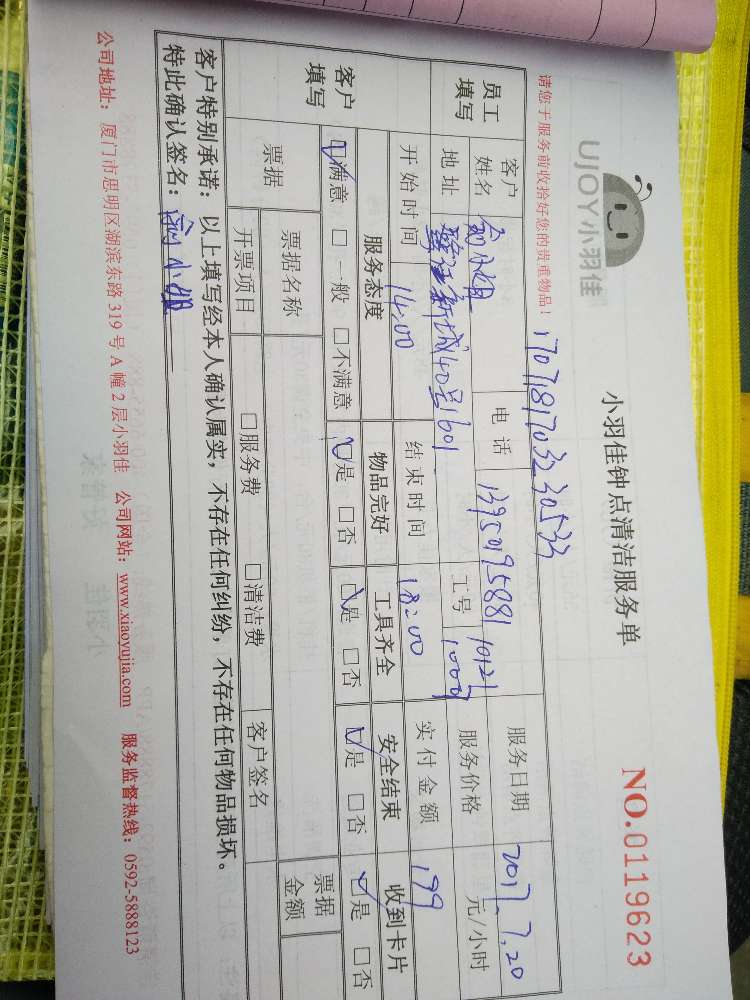 UJOY小羽佳
小羽佳钟点清洁服务单
NO.0119623
请您于服务前收拾好您的贵重物品！ 1707181703230533
员工填写 客户姓名 电话 13950195881 工号 10121 服务日期 2017.7.20
地址 新城140号1601 1000 服务价格 元/小时
开始时间 14:00 结束时间 18:00 实付金额 199
客户填写 服务态度 物品完好 工具齐全 安全结束 收到卡片
☑满意 □一般 □不满意 ☑是 □否 ☑是 □否 ☑是 □否 ☑是 □否
票据 票据名称 票据金额
开票项目 □服务费 □清洁费 客户签名
客户特别承诺：以上填写经本人确认属实，不存在任何纠纷，不存在任何物品损坏。
特此确认签名： 小姐
公司地址：厦门市思明区湖滨东路319号A幢2层小羽佳 公司网站：www.xiaoyujia.com 服务监督热线：0592-5888123